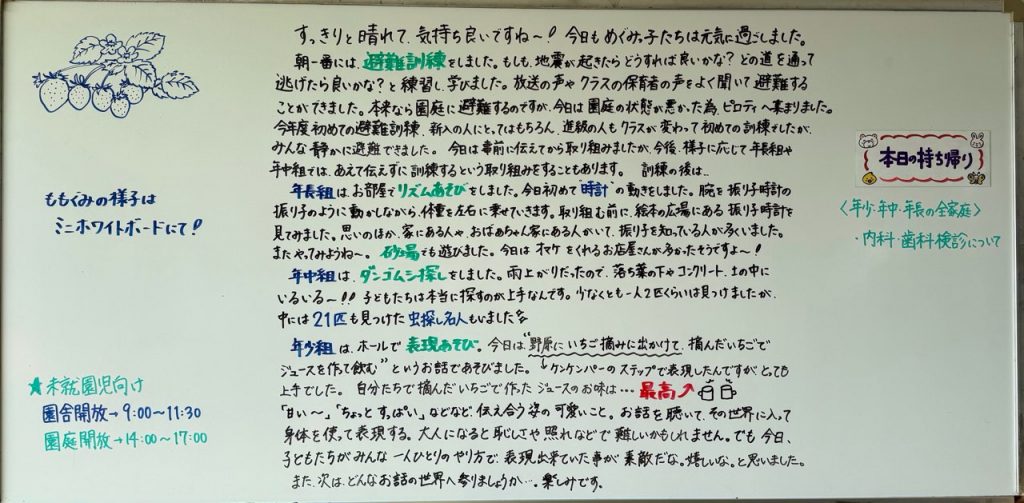 すっきりと晴れて、気持ち良いですね〜！今日もめぐみっ子たちは元気に過ごしました。
朝一番には、避難訓練をしました。もしも、地震が起きたらどうすれば良いかな？どの道を通って
逃げたら良いかな？と練習し、学びました。放送の声やクラスの保育者の声をよく聞いて避難する
ことができました。本来なら園庭に避難するのですが、今日は園庭の状態が悪かった為、ピロティへ集まりました。
今年度初めての避難訓練、新入の人にとってはもちろん、進級の人もクラスが変わって初めての訓練でしたが、
みんな静かに避難できました。今日は事前に伝えてから取り組みましたが、今後、様子に応じて年長組や
年中組では、あえて伝えずに訓練するという取り組みをすることもあります。訓練の後は…
年長組はお部屋でリズムあそびをしました。今日初めて"時計"の動きをしました。腕を振り子時計の
振り子のように動かしながら、体重を左右に乗せていきます。取り組む前に、絵本の広場にある振り子時計を
見てみました。思いのほか、家にある人や、おばあちゃん家にある人がいて、振り子を知っている人が多くいました。
またやってみようね〜。砂場でも遊びました。今日はオマケをくれるお店屋さんが多かったそうですよ〜！
年中組は、ダンゴムシ探しをしました。雨上がりだったので、落ち葉の下やコンクリート、土の中に
いるいる〜!!子どもたちは本当に探すのが上手なんです。少なくとも一人2匹くらいは見つけましたが、
中には21匹も見つけた虫探し名人もいました
年少組は、ホールで表現あそび。今日は"野原にいちご摘みに出かけて、摘んだいちごで
ジュースを作って飲む"というお話であそびました。↓ケンケンパーのステップで表現したんですがとても
上手でした。自分たちで摘んだいちごで作ったジュースのお味は…最高
「甘い〜」「ちょっとすっぱい」などなど、伝え合う姿の可愛いこと。お話を聴いて、その世界に入って
身体を使って表現する。大人になると恥じしさや照れなどで難しいかもしれません。でも今日、
子どもたちがみんな一人ひとりのやり方で、表現出来ていた事が素敵だな。嬉しいな。と思いました。
また、次は、どんなお話の世界へ参りましょうか…。楽しみです。
ももぐみの様子は
ミニホワイトボードにて！
★未就園児向け
園舎開放→9:00〜11:30
園庭開放→14:00〜17:00
本日の持ち帰り
〈年少・年中・年長の全家庭〉
・内科・歯科検診について